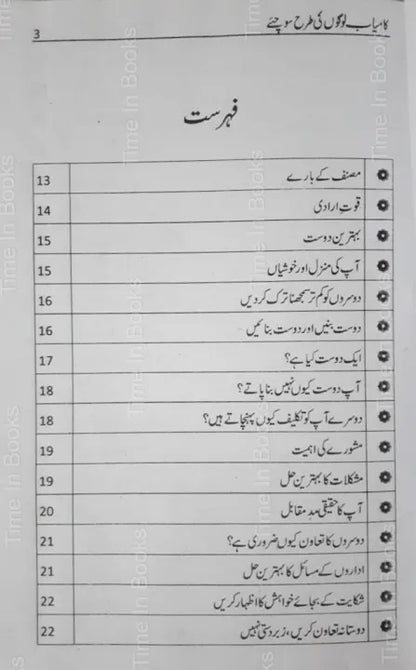 کامیاب لوگوں کی طرح سوچئے 3
فہرست
مصنف کے بارے 13
قوتِ ارادی 14
بہترین دوست 15
آپ کی منزل اور خوشیاں 15
دوسروں کو کم تر سمجھنا ترک کر دیں 16
دوست بنیں اور دوست بنائیں 16
ایک دوست کیا ہے؟ 17
آپ دوست کیوں نہیں بنا پاتے؟ 18
دوسرے آپ کو تکلیف کیوں پہنچاتے ہیں؟ 18
مشورے کی اہمیت 19
مشکلات کا بہترین حل 19
آپ کا حقیقی مدِ مقابل 20
دوسروں کا تعاون کیوں ضروری ہے؟ 21
اداروں کے مسائل کا بہترین حل 21
شکایت کے بجائے خواہش کا اظہار کریں 22
دوستانہ تعاون کریں، زبردستی نہیں 22
Time In Books
Time In Books
Time In Books
Time In Books
Time In Books
Time In Books